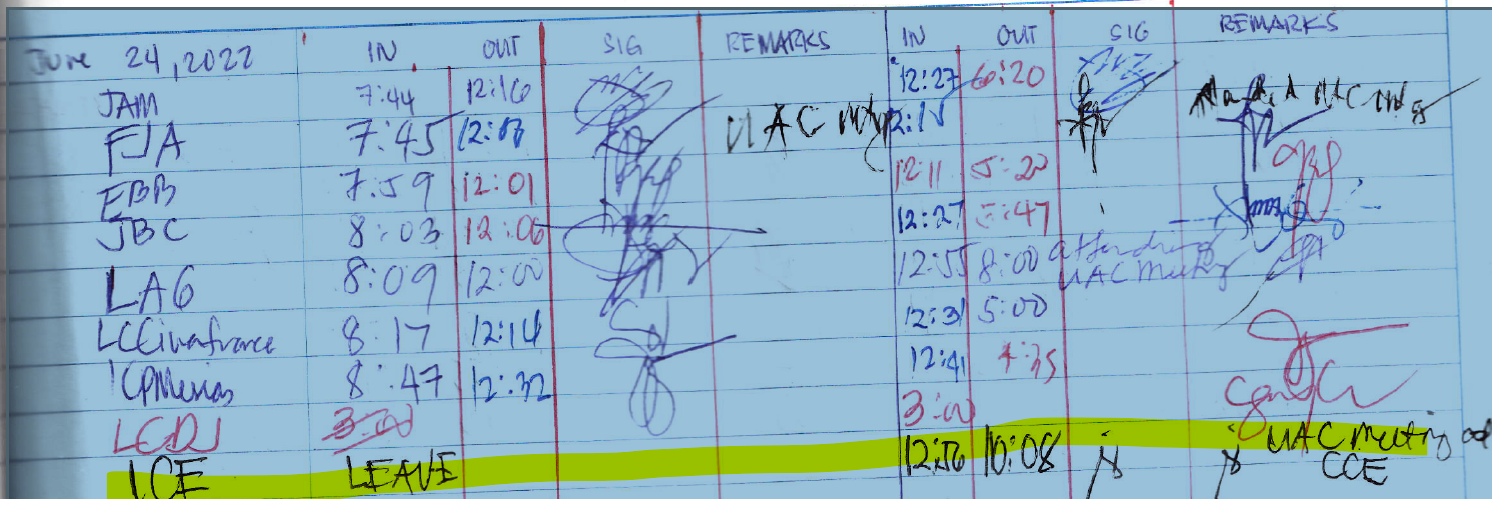 June 24, 2022 IN OUT SIG REMARKS IN OUT SIG REMARKS
JAM 7:44 12:16 12:27 6:20
FJA 7:45 UAC Mtg UAC Mtg
EBB 7:59 12:01 12:11 5:20
JBC 8:03 12:06 12:27 5:47
LAG 8:09 12:00 12:55 8:00 attending
UAC Meeting
8:17 12:14 12:31 5:00
8:47 12:32 12:41 4:35
LCDJ 3:00 3:00
LCE LEAVE 12:56 10:08 UAC Meeting
CCE